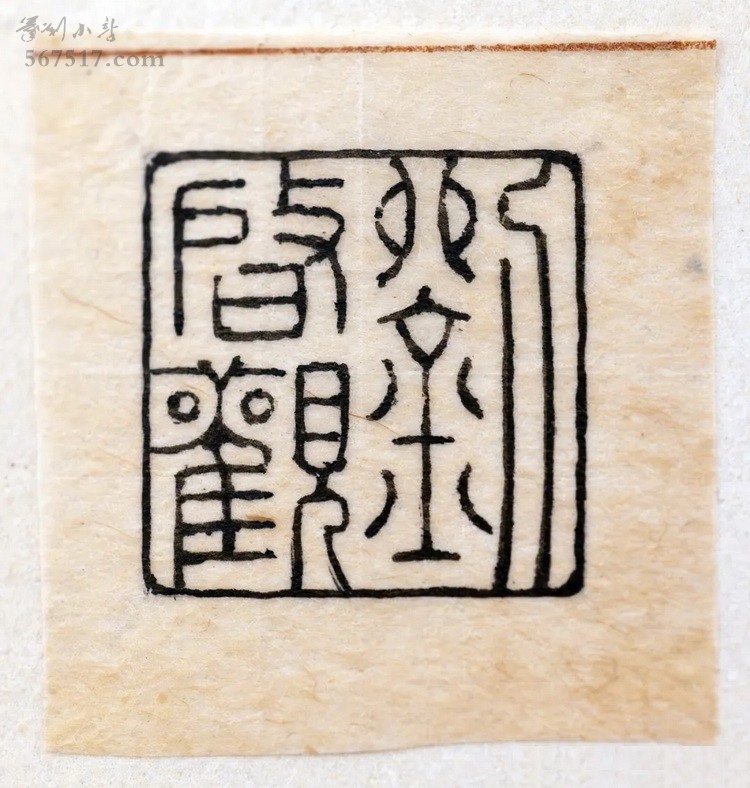 篆刻小站
567517.com
劉
啓觀